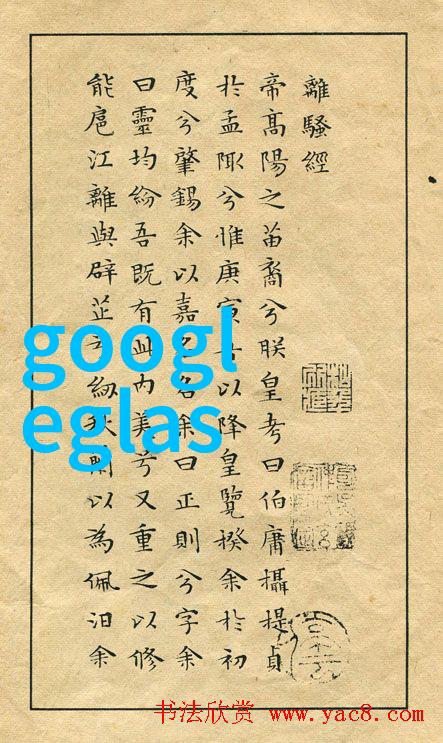 離騷經
帝髙陽之苗裔兮朕皇考曰伯庸攝提貞
於孟陬兮惟庚寅吾以降皇覽揆余於初
度兮肇錫余以嘉名名余曰正則兮字余
曰靈均紛吾既有此內美兮又重之以修
能扈江離與辟芷兮紉秋蘭以為佩汨余
googl
eglas
书法欣赏 www.yac8.com